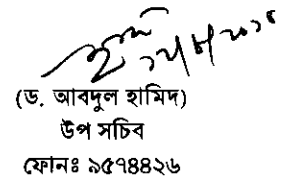 (ড. আবদুল হামিদ)
উপ সচিব
ফোনঃ ৯৫৭৪৪২৬